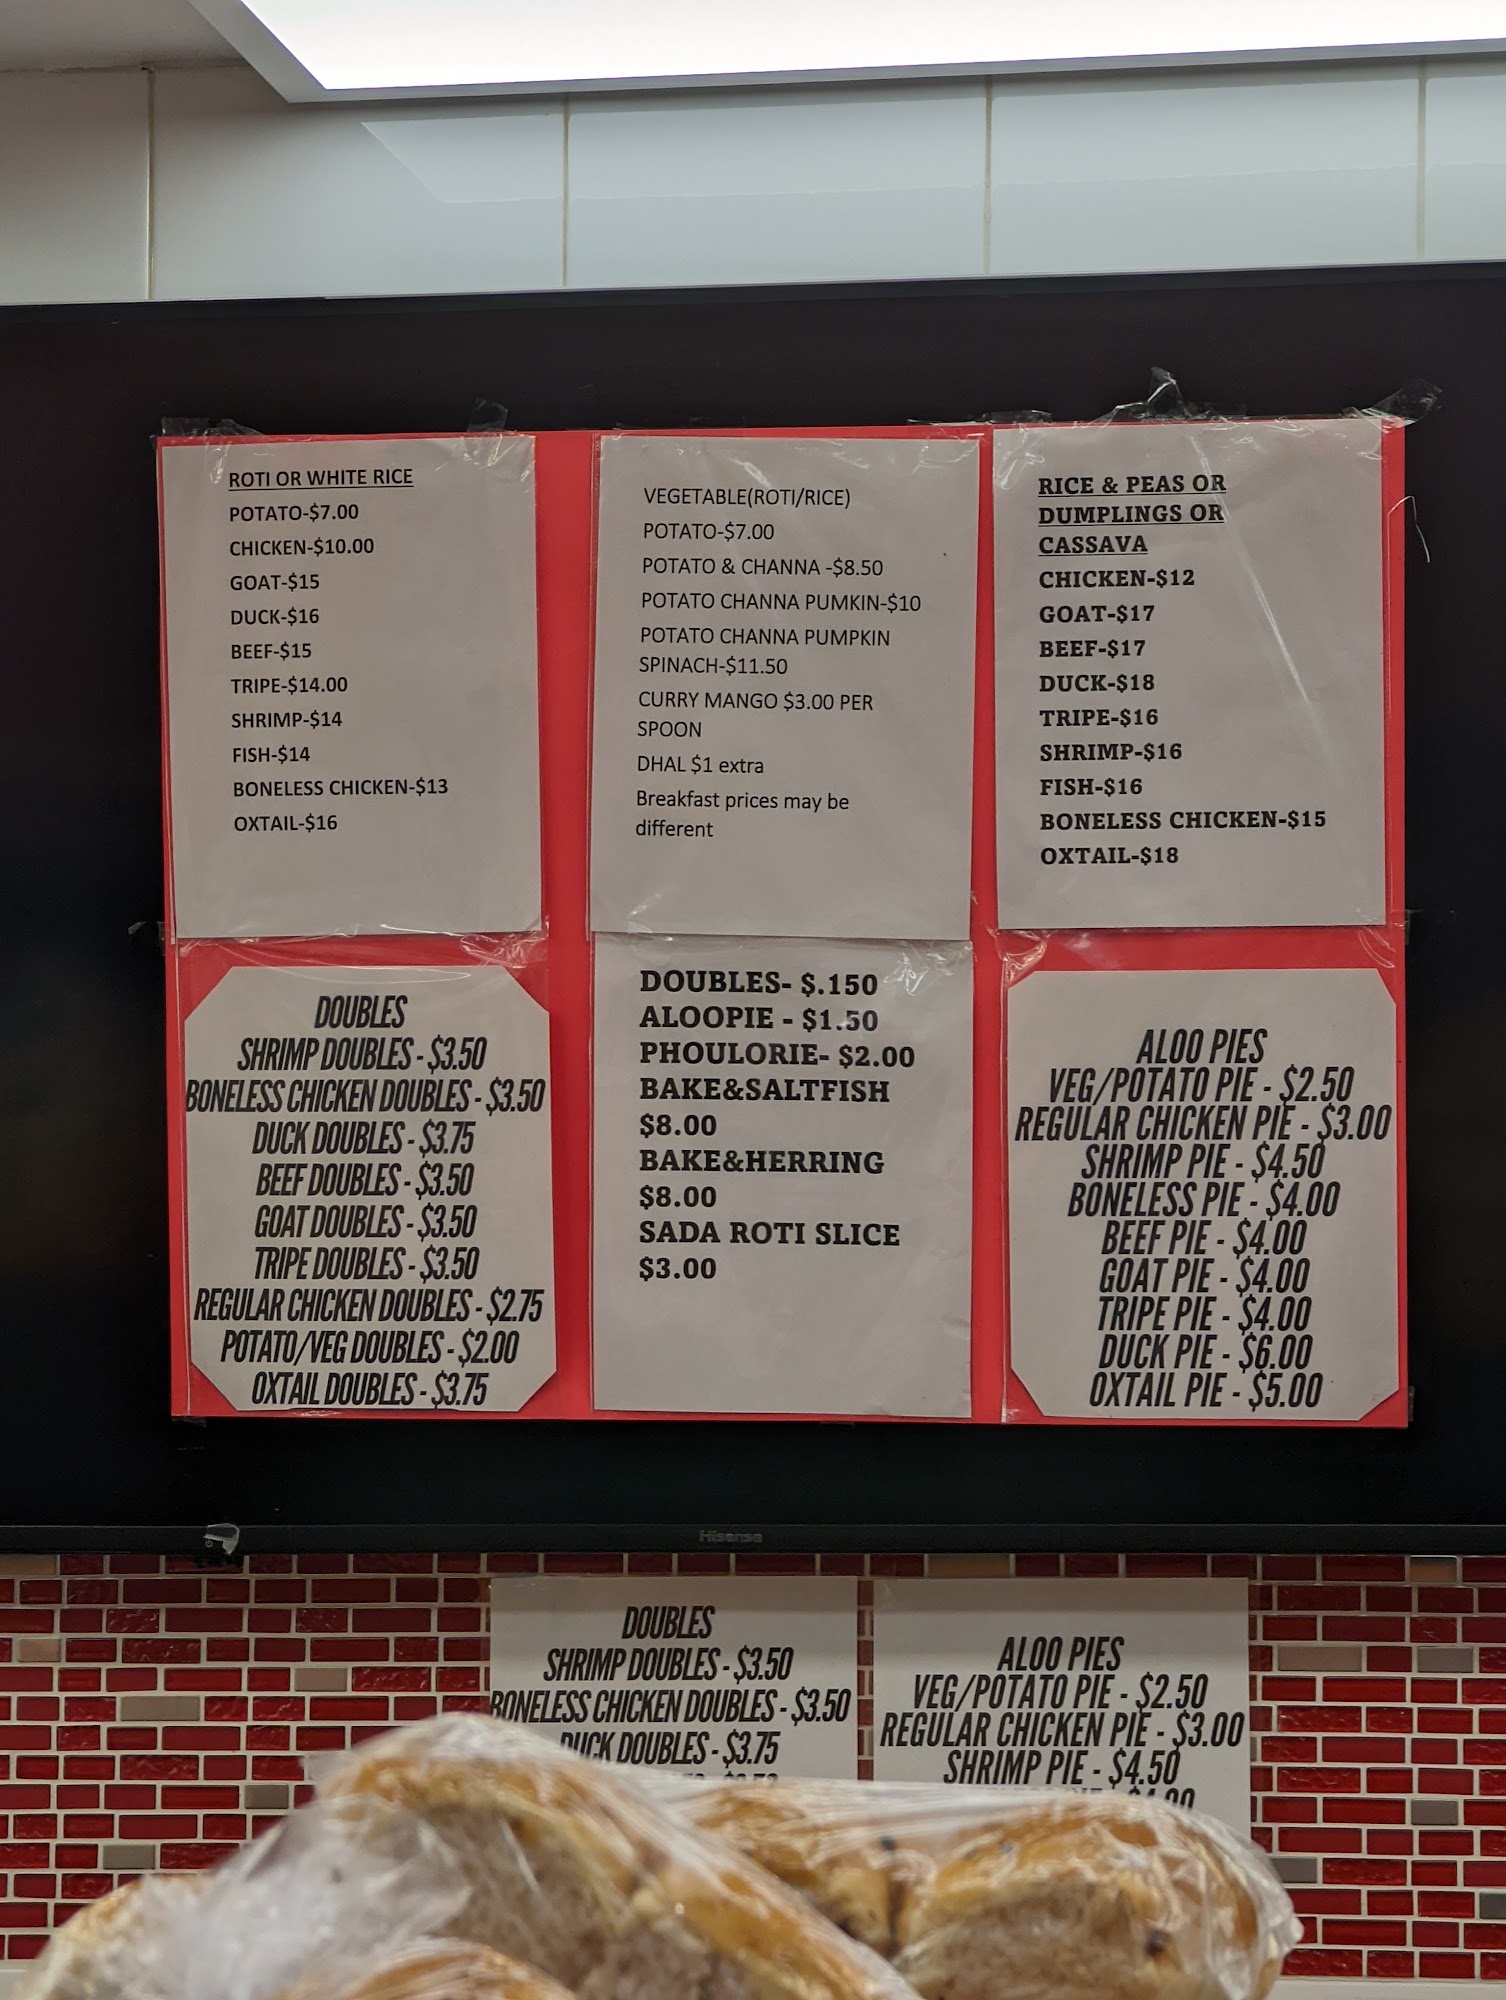 ROTI OR WHITE RICE
POTATO-$7.00
CHICKEN-$10.00
GOAT-$15
DUCK-$16
BEEF-$15
TRIPE-$14.00
SHRIMP-$14
FISH-$14
BONELESS CHICKEN-$13
OXTAIL-$16
VEGETABLE(ROTI/RICE)
POTATO-$7.00
POTATO & CHANNA -$8.50
POTATO CHANNA PUMKIN-$10
POTATO CHANNA PUMPKIN
SPINACH-$11.50
CURRY MANGO $3.00 PER
SPOON
DHAL $1 extra
Breakfast prices may be
different
RICE & PEAS OR
DUMPLINGS OR
CASSAVA
CHICKEN-$12
GOAT-$17
BEEF-$17
DUCK-$18
TRIPE-$16
SHRIMP-$16
FISH-$16
BONELESS CHICKEN-$15
OXTAIL-$18
DOUBLES
SHRIMP DOUBLES - $3.50
BONELESS CHICKEN DOUBLES - $3.50
DUCK DOUBLES - $3.75
BEEF DOUBLES - $3.50
GOAT DOUBLES - $3.50
TRIPE DOUBLES - $3.50
REGULAR CHICKEN DOUBLES - $2.75
POTATO/VEG DOUBLES - $2.00
OXTAIL DOUBLES - $3.75
DOUBLES- $.150
ALOOPIE - $1.50
PHOULORIE- $2.00
BAKE&SALTFISH
$8.00
BAKE&HERRING
$8.00
SADA ROTI SLICE
$3.00
ALOO PIES
VEG/POTATO PIE - $2.50
REGULAR CHICKEN PIE - $3.00
SHRIMP PIE - $4.50
BONELESS PIE - $4.00
BEEF PIE - $4.00
GOAT PIE - $4.00
TRIPE PIE - $4.00
DUCK PIE - $6.00
OXTAIL PIE - $5.00
Hisense
DOUBLES
SHRIMP DOUBLES - $3.50
BONELESS CHICKEN DOUBLES - $3.50
DUCK DOUBLES - $3.75
ALOO PIES
VEG/POTATO PIE - $2.50
REGULAR CHICKEN PIE - $3.00
SHRIMP PIE - $4.50